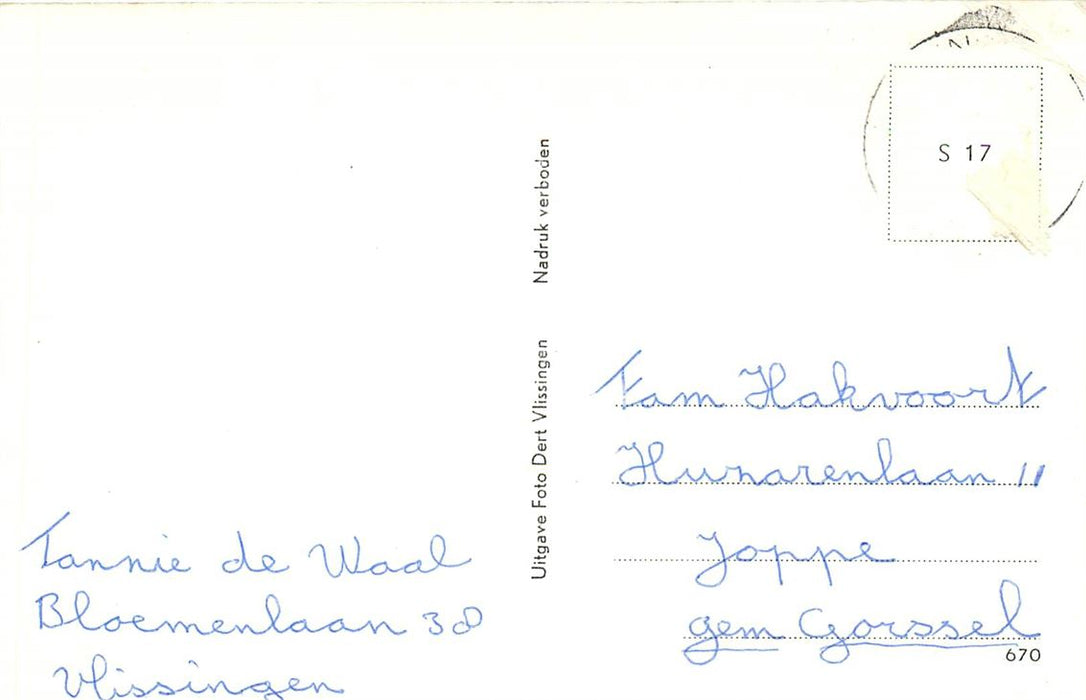 Tannie de Waal
Bloemenlaan 38
Vlissingen
Uitgave Foto Dert Vlissingen Nadruk verboden
S 17
Fam Hakvoort
Hunarenlaan 11
Joppe
gem Gorssel
670